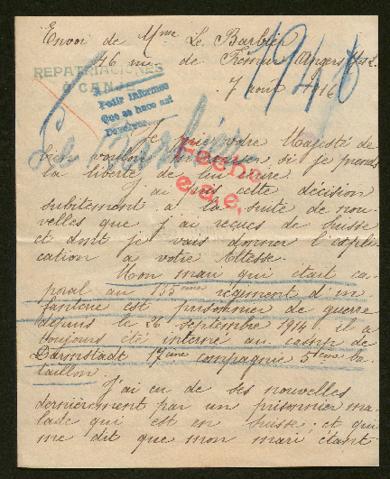 Envoi de Mme Le Barbier
46 rue de Frémur Angers M&L
7 août 1916
REPATRIACIONES
O CANJE
Pedir informes
Que se hace así
Devolver
1946
Le Barbier
Hecho
e.s.e.
Je prie votre Majesté de
bien vouloir m'excuser si je prends
la liberté de lui écrire
J'ai pris cette décision
subitement à la suite de nou-
velles que j'ai reçues de Suisse
et dont je vais donner l'expli-
cation à votre Altesse.
Mon mari qui était ca-
poral au 135ème régiment d'in
fanterie est prisonnier de guerre
depuis le 26 Septembre 1914 il a
toujours été interné au camp de
Darmstadt 17ème compagnie 5ème ba-
taillon.
J'ai eu de ses nouvelles
dernièrement par un prisonnier ma-
lade qui est en Suisse; et qui
me dit que mon mari étant